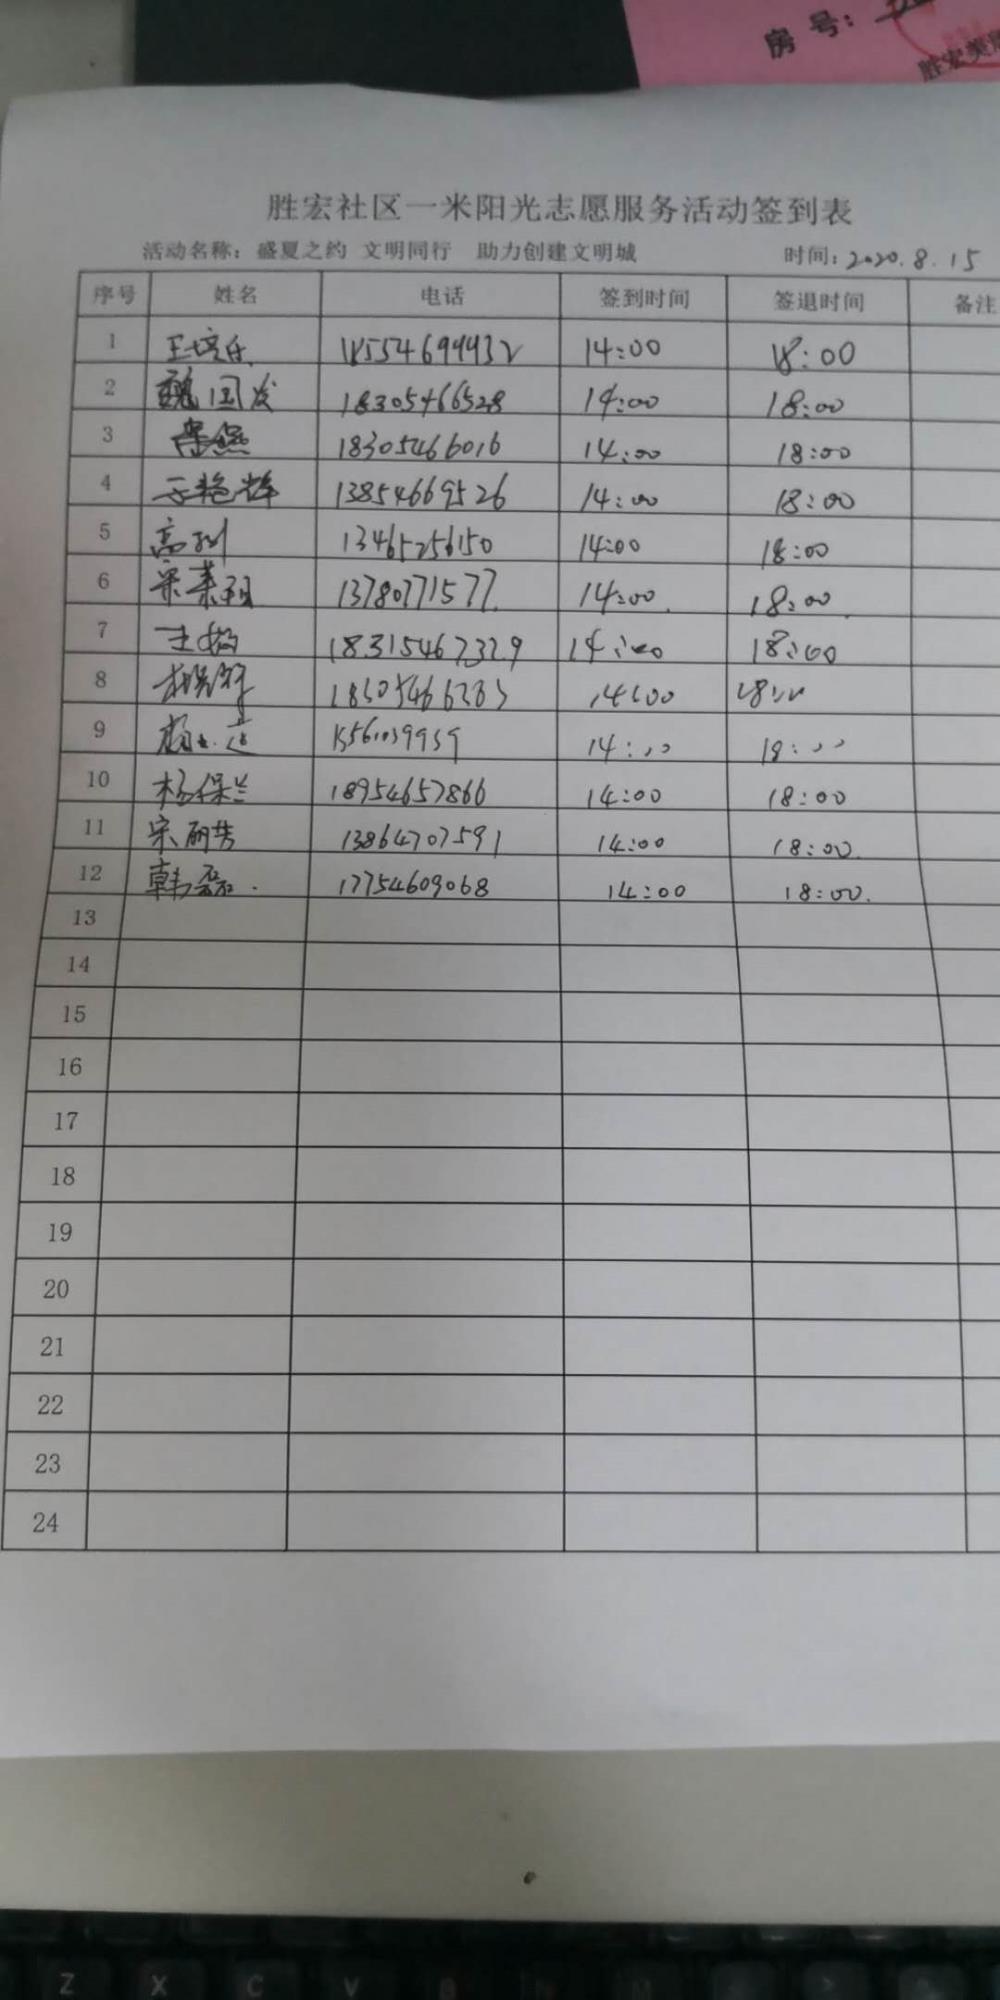 房 号：
胜宏美
胜宏社区一米阳光志愿服务活动签到表
活动名称：盛夏之约 文明同行 助力创建文明城 时间：2020.8.15
序号 姓名 电话 签到时间 签退时间 备注
1 14:00 18:00
2 魏国发 18305466528 14:00 18:00
3 18305466016 14:00 18:00
4 于艳辉 13854669526 14:00 18:00
5 高 13465256150 14:00 18:00
6 宋 13780771577 14:00 18:00
7 王 18315467329 14:00 18:00
8 14:00 18:00
9 杨 15561039959 14:00 18:00
10 杨保兰 18954657866 14:00 18:00
11 宋丽芳 13864707591 14:00 18:00
12 韩磊 17754609068 14:00 18:00
13
14
15
16
17
18
19
20
21
22
23
24
Z X C V B N M